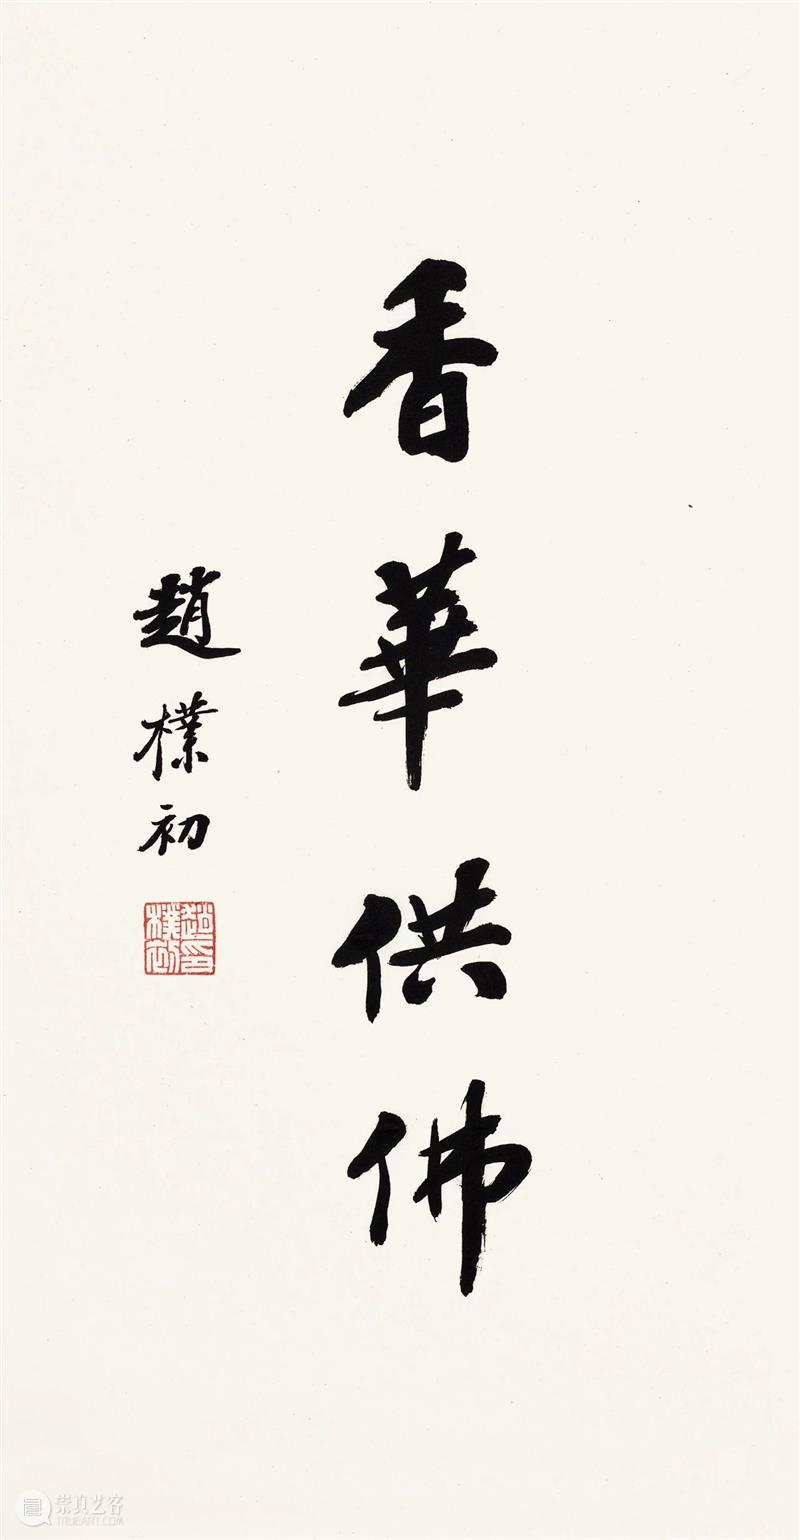 香華供佛
趙樸初
趙樸初印
崇真艺客
WWW.TRUEART.COM